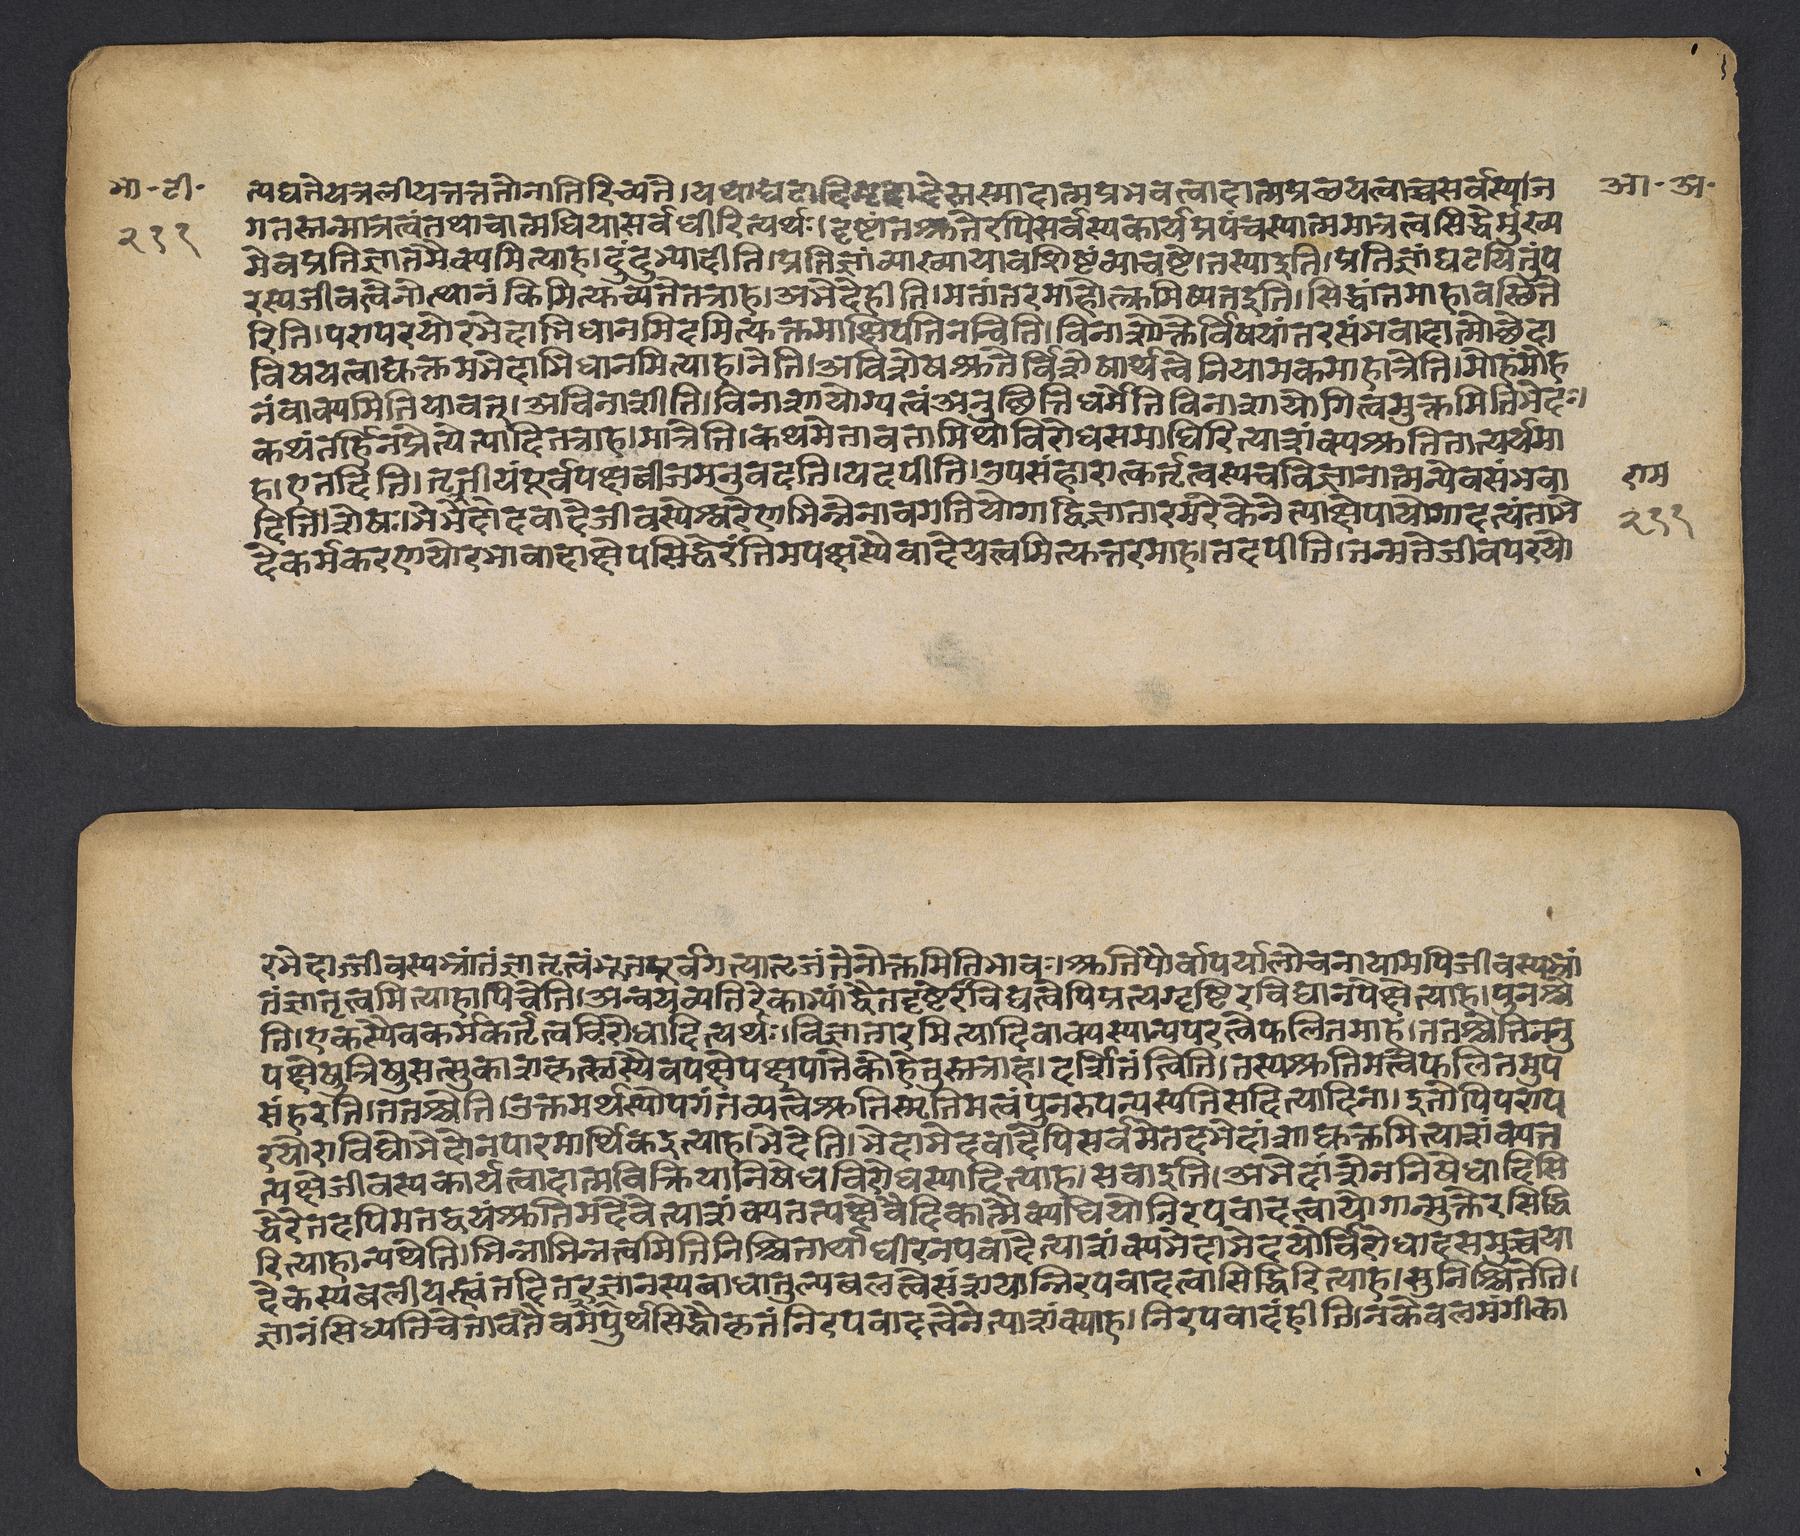 भा-टी-
२११
आ-अ-
त्पद्यतेयत्रलीयतत्ततोनातिरिच्यते।यथाघटादिमृदादेस्तस्मादात्मप्रभवत्वादात्मप्रलयत्वाच्चसर्वस्याज
गतस्तन्मात्रत्वंतथाचात्मधियासर्वधीरित्यर्थः।दृष्टांतश्रुतेरपिसर्वस्यकार्यप्रपंचस्यात्ममात्रत्वसिद्धेर्मुख्य
मेवप्रतिज्ञातमैक्यमित्याह।दुंदुभ्यादीति।प्रतिज्ञांव्याख्यायावशिष्टंव्याचष्टे।तस्याइति।प्रतिज्ञांघटयितुंप
रस्यजीवत्वेनोत्थानंकिमित्युच्यतेतत्राह।अभेदेहीति।मतांतरमाहोत्क्रमिष्यतइति।सिद्धांतमाहावस्थिते
रिति।परापरयोरभेदाभिधानमिदमित्युक्तमाक्षिपतिनन्विति।विनाशोक्तेर्विषयांतरसंभवादात्मोच्छेदा
विषयत्वाद्युक्तमभेदाभिधानमित्याह।नेति।अविशेषश्रुतेर्विशेषार्थत्वेनियामकमाहात्रेति।मोहंमोह
नंवाक्यमितियावत्।अविनाशीति।विनाशायोग्यत्वंअनुच्छित्तिधर्मेतिविनाशायोगित्वमुक्तमितिभेदः।
कथंतर्हिनप्रेत्येत्यादितत्राह।मात्रेति।कथमेतावतामिथोविरोधसमाधिरित्याशंक्यश्रुतितात्पर्यमा
ह।एतदिति।तृतीयंपूर्वपक्षबीजमनुवदति।यदपीति।उपसंहारात्कर्तृत्वस्यचविज्ञानात्मन्येवसंभवा
दिति।शेषः।भेदेभेदवादेजीवस्येश्वरेणाभिन्नेनावगतियोगाद्विज्ञातारमरेकेनेत्याक्षेपायोगादत्यंताभे
देकर्मकरणयोरभावादाक्षेपसिद्धेरंतिमपक्षस्यैवादेयत्वमित्युत्तरमाह।तदपीति।तन्मतेजीवपरयो
राम
२११
रभेदाज्जीवस्यभ्रांतंज्ञातृत्वंभूतपूर्वगत्यातृजंतेनोक्तमितिभावः।श्रुतिपौर्वापर्यालोचनायामपिजीवस्यभ्रां
तंज्ञातृत्वमित्याहापिचेति।अन्वयव्यतिरेकाभ्यांद्वैतदृष्टेरविद्यत्वेपिप्रत्यग्दृष्टिरविद्यानपेक्षेत्याह।पुनश्चे
ति।एकस्यैवकर्मकर्तृत्वविरोधादित्यर्थः।विज्ञातारमित्यादिवाक्यस्यान्यपरत्वेफलितमाह।ततश्चेतिननु
पक्षेषुत्रिषुसत्सुकाशकृत्स्नस्यैवपक्षेपक्षपातेकोहेतुस्तत्राह।दर्शितंत्विति।तस्यश्रुतिमत्त्वेफलितमुप
संहरति।ततश्चेति।उक्तमर्थस्योपगंतव्यत्वेश्रुतिस्मृतिमत्वंपुनरुपन्यस्यतिसदित्यादिना।इतोपिपराप
रयोराविद्योभेदोनपारमार्थिकइत्याह।भेदेति।भेदाभेदवादेपिसर्वमेतदभेदांशाद्युक्तमित्याशंक्यत
त्पक्षेजीवस्यकार्यत्वादात्मविक्रियानिषेधविरोधस्यादित्याह।सवाइति।अभेदांशेननिषेधादिसि
द्धेरेतदपिमतद्वयंश्रुतिमदेवेत्याशंक्यतत्पक्षेवैदिकात्मैक्यधियोनिरपवादत्वायोगान्मुक्तेरसिद्धि
रित्याहान्यथेति।भिन्नाभिन्नत्वमितिनिश्चितार्थाधीरनपवादेत्याशंक्यभेदाभेदयोर्विरोधादसमुच्चया
देकस्यबलीयस्त्वंतदितरज्ञानस्यबाधात्तुल्यबलत्वेसंशयान्निरपवादत्वासिद्धिरित्याह।सुनिश्चितेति।
ज्ञानंसिध्यतिचेत्तावतैवमपुर्थसिद्धौकृतंनिरपवादत्वेनेत्याशंक्याह।निरपवादंहीति।नकेवलमंगीका